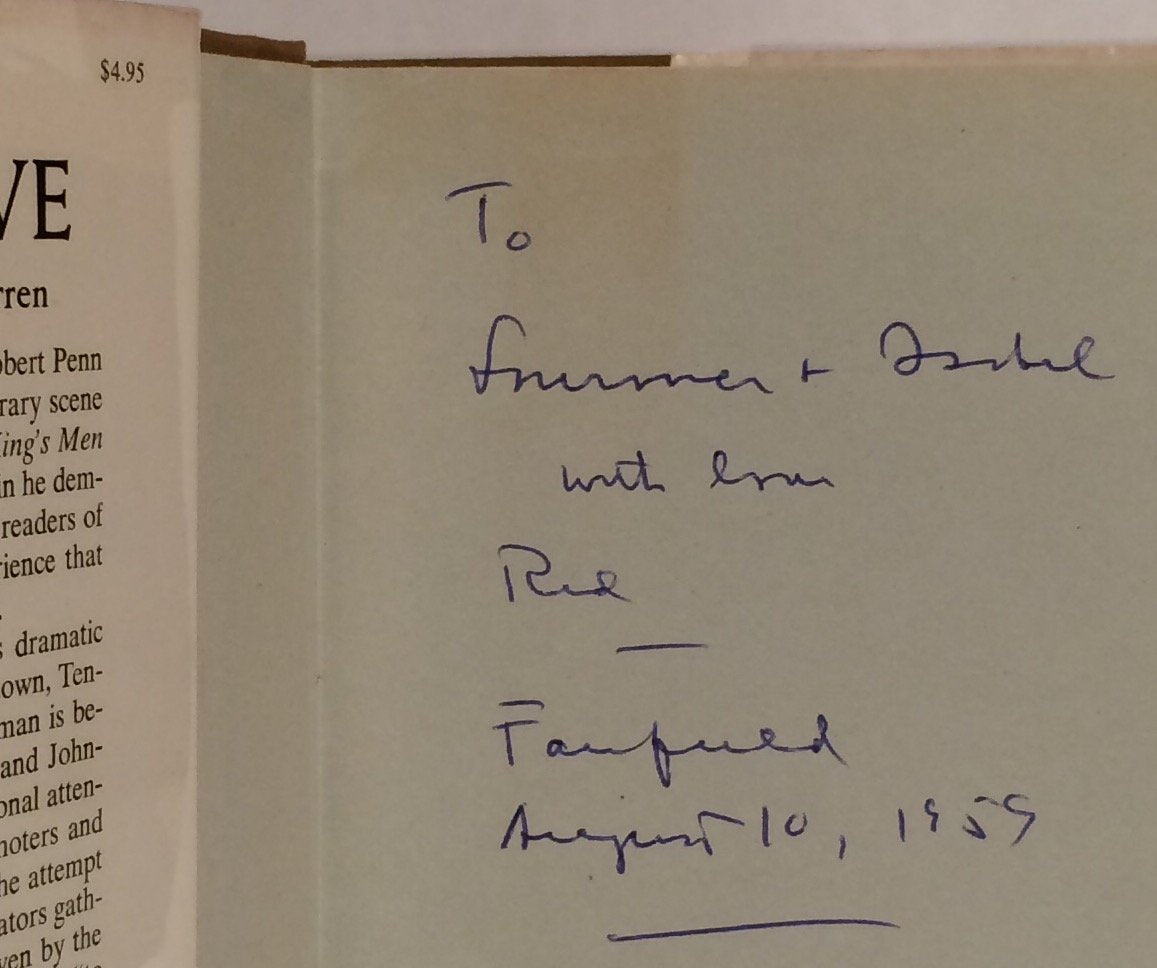 $4.95
VE
rren
obert Penn
rary scene
ing's Men
in he dem-
readers of
rience that
s dramatic
own, Ten-
man is be-
and John-
onal atten-
moters and
he attempt
ators gath-
ven by the
To
Sumner + Isabel
with love
Red
Fairfield
August 10, 1959